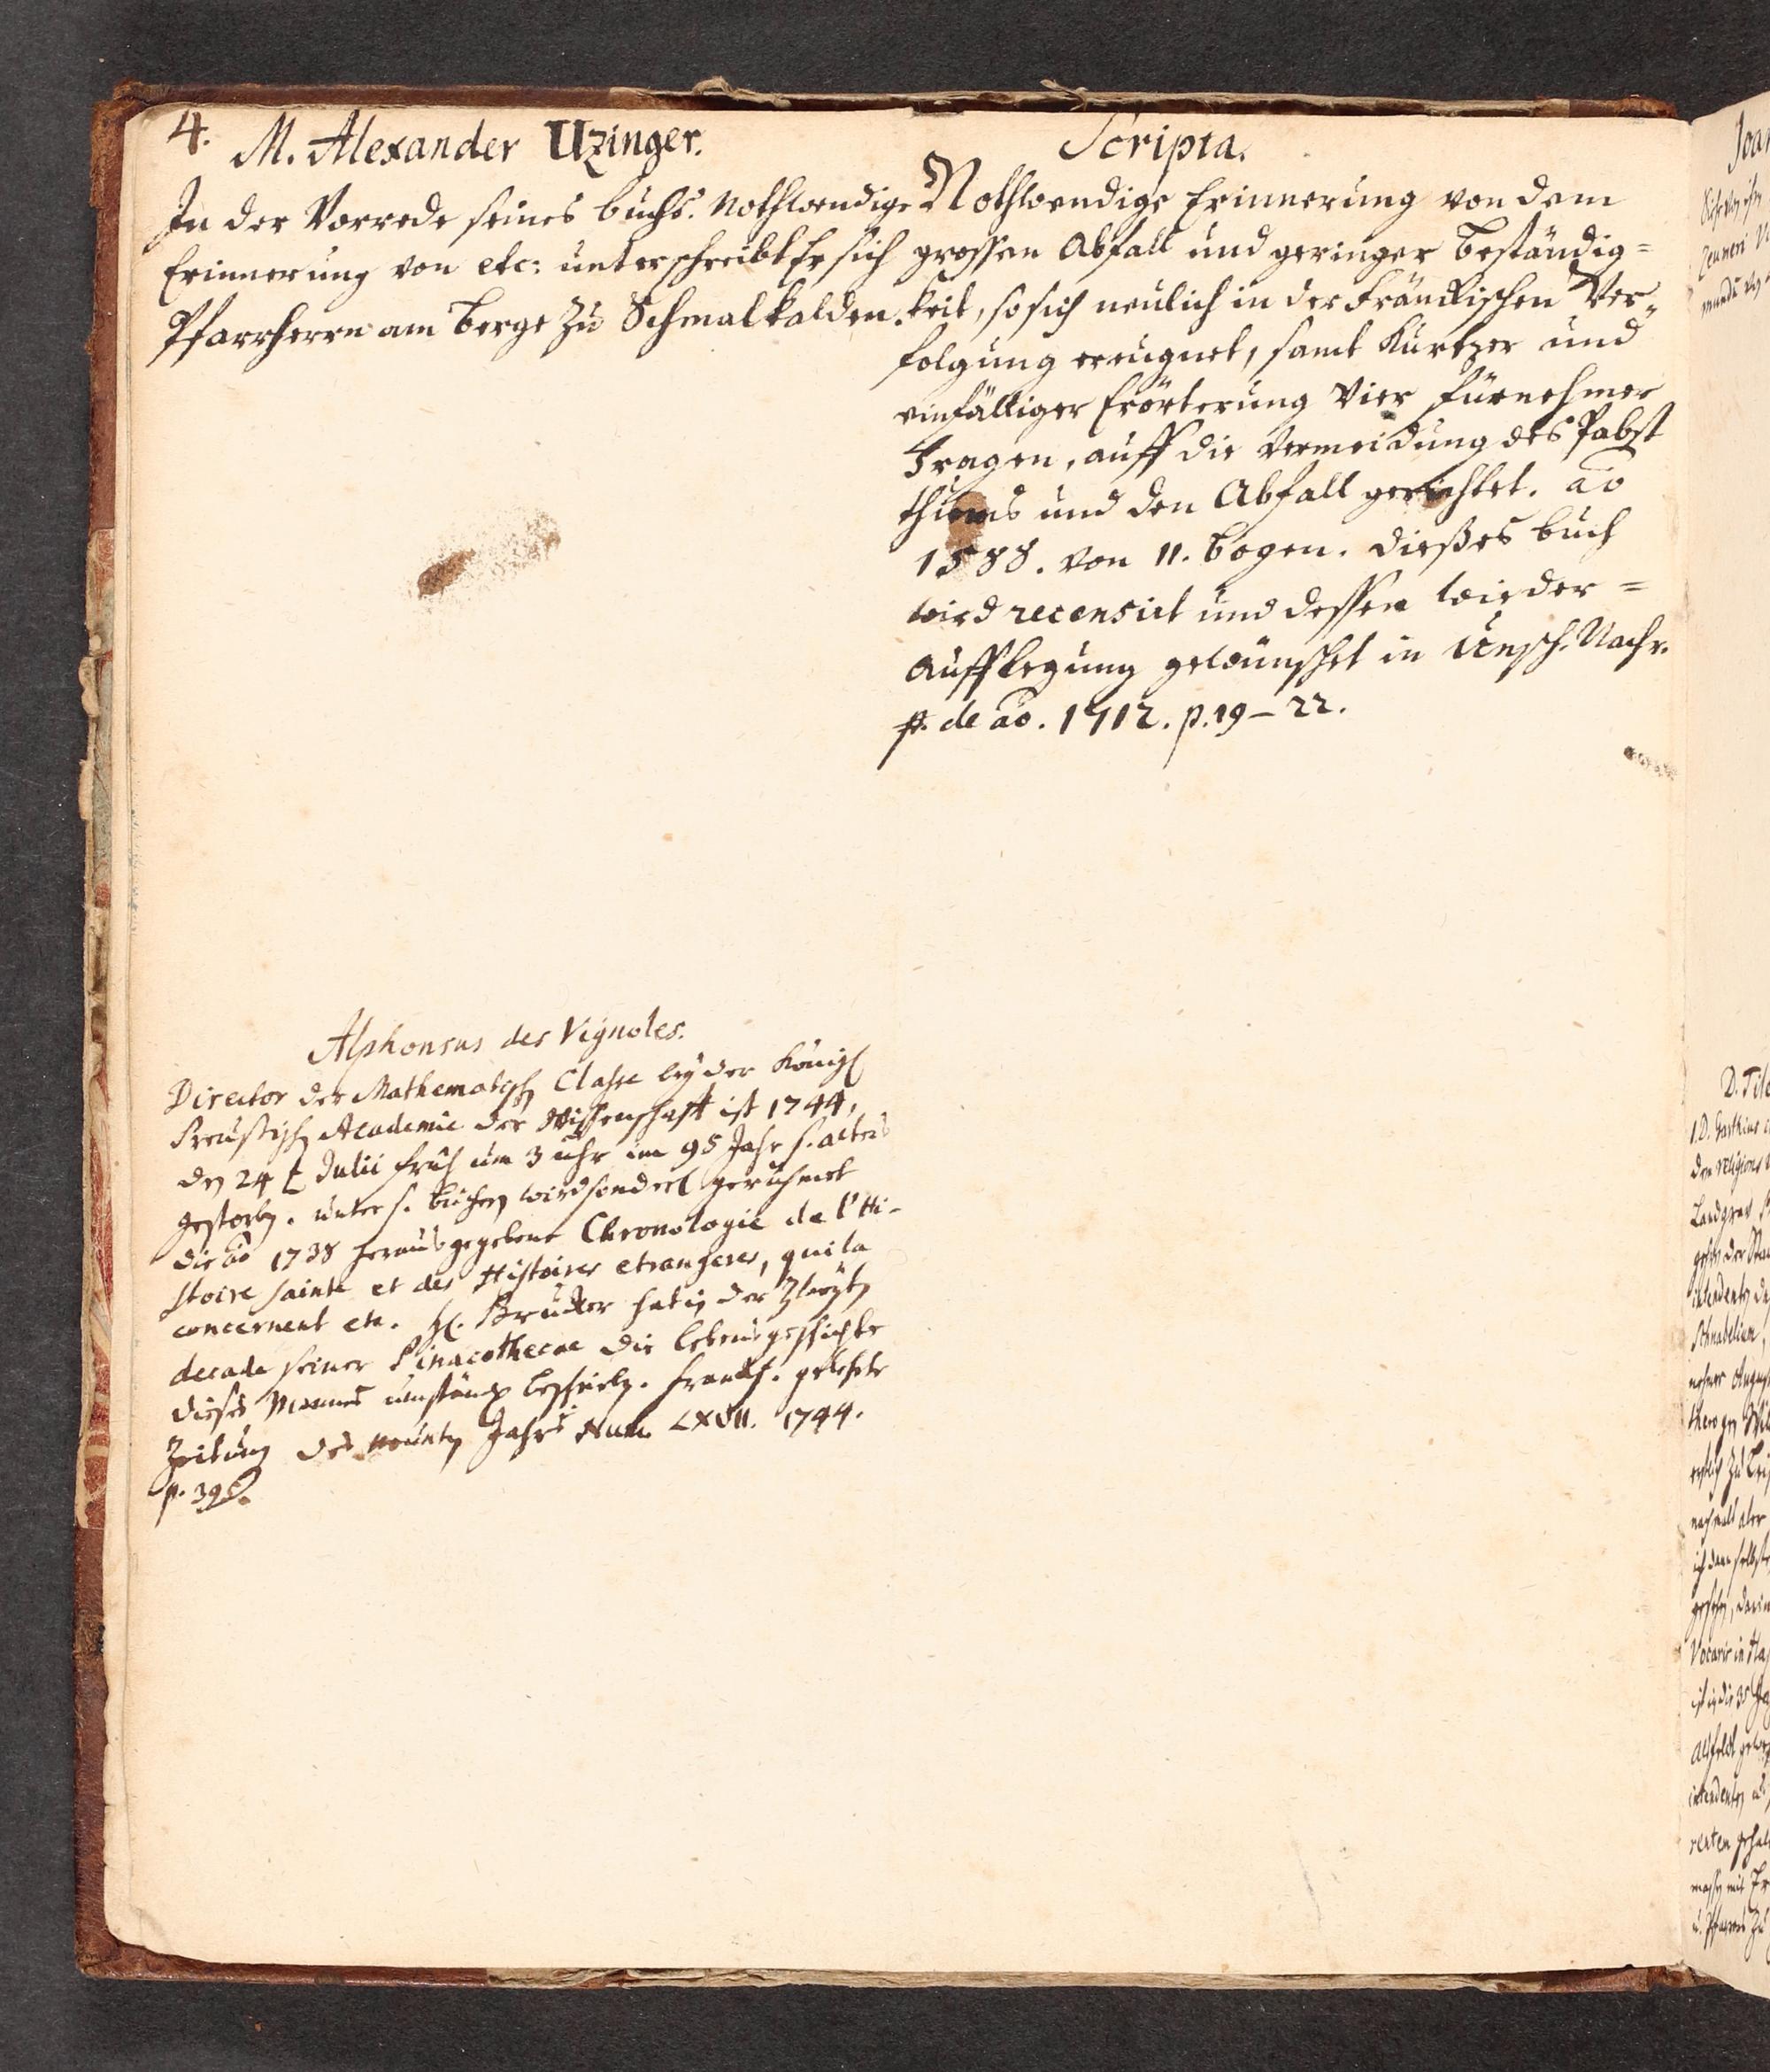 4.
M. Alexander Uzinger.
In der Vorrede seines buchs. Nothwendige
Erinnerung von etc: unterschreibt Er sich
Pfarrherrn am Berge zu Schmalkalden.
Scripta.
Nothwendige Erinnerung von dem
grossen Abfall und geringer Beständig=
keit, so sich neulich in der Fränckischen Ver=
folgung ereugnet, samt kurtzer und
einfältiger Erörterung Vier fürnehmer
Fragen, auff die Vermeidung des Pabst
thums und den Abfall gerichtet. ao
1588. von 11. bogen. dießes buch
wird recensirt und dessen wieder=
aufflegung gewünschet in Unsch. Nachr.
p. de ao. 1712. p. 19-22.
Alphonsus des Vignoles.
Director der Mathematisch Classe bey der Königl
Preussisch Academie der Wissenschaft ist 1744,
den 24 Julii früh um 3 uhr im 95 Jahr s. alters
gestorben. unter s. büchern wird sonderl gerühmet
die ao 1738 herausgegebene Chronologie de l'Hi-
stoire sainte et des Histoires etrangeres, qui la
concernent etc. H. Brucker hat in der zweyten
decade seiner Pinacothecae die lebensgeschichte
dieses Mannes umständl beschrieben. Franckf. gelehrte
Zeitung des neunten Jahrs Num. LXVII. 1744.
p. 39